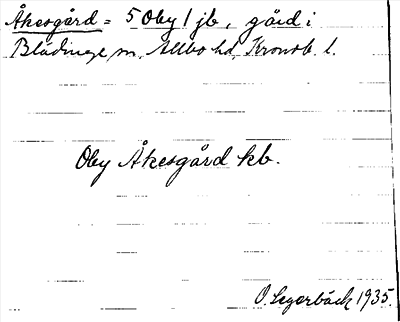 Åkesgård = 5 Oby 1 jb, gård i
Blädinge sn, Allbo hd, Kronob. l.
Oby Åkesgård kb.
O. Legerbäck 1935.